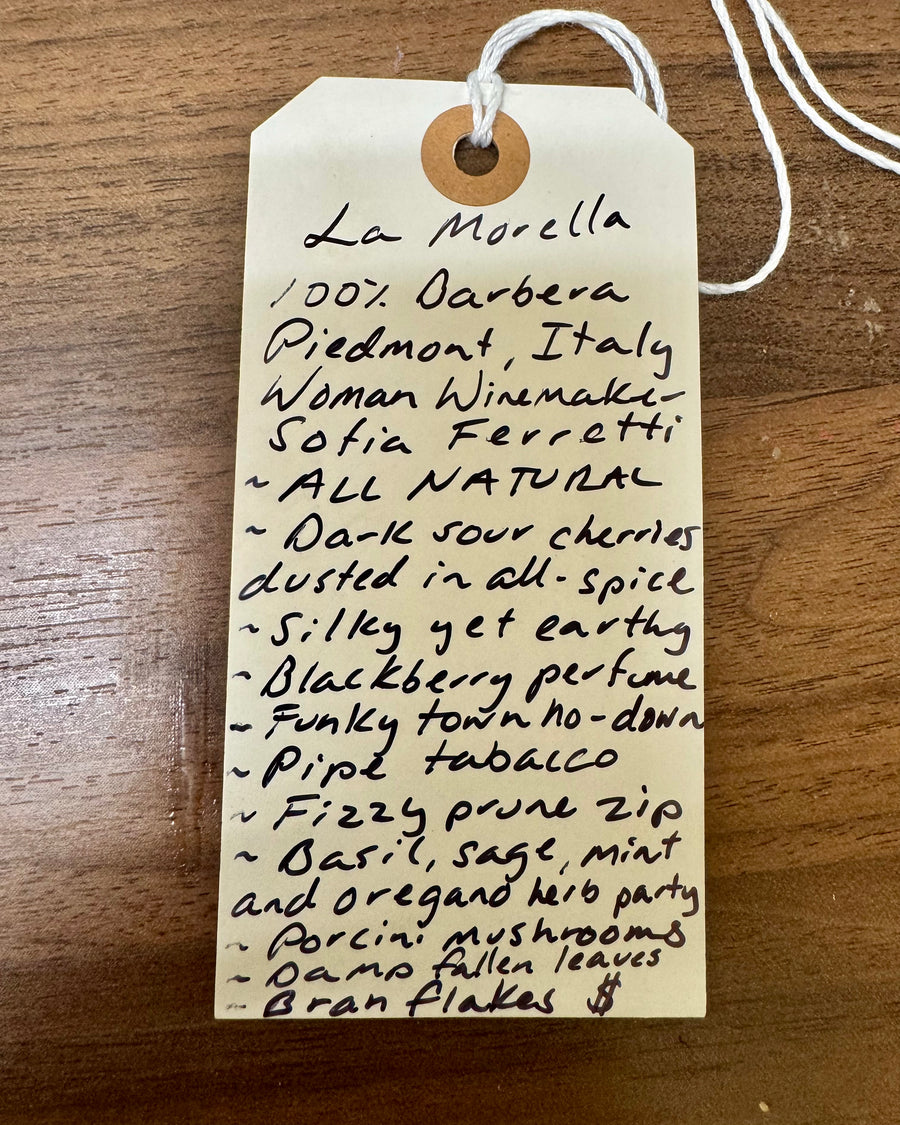 La Morella
100% Barbera
Piedmont, Italy
Woman Winemaker
Sofia Ferretti
~ ALL NATURAL
~ Dark sour cherries
dusted in all-spice
~ Silky yet earthy
~ Blackberry perfume
~ Funky town ho-down
~ Pipe tobacco
~ Fizzy prune zip
~ Basil, sage, mint
and oregano herb party
~ Porcini mushrooms
~ Damp fallen leaves
~ Bran flakes $